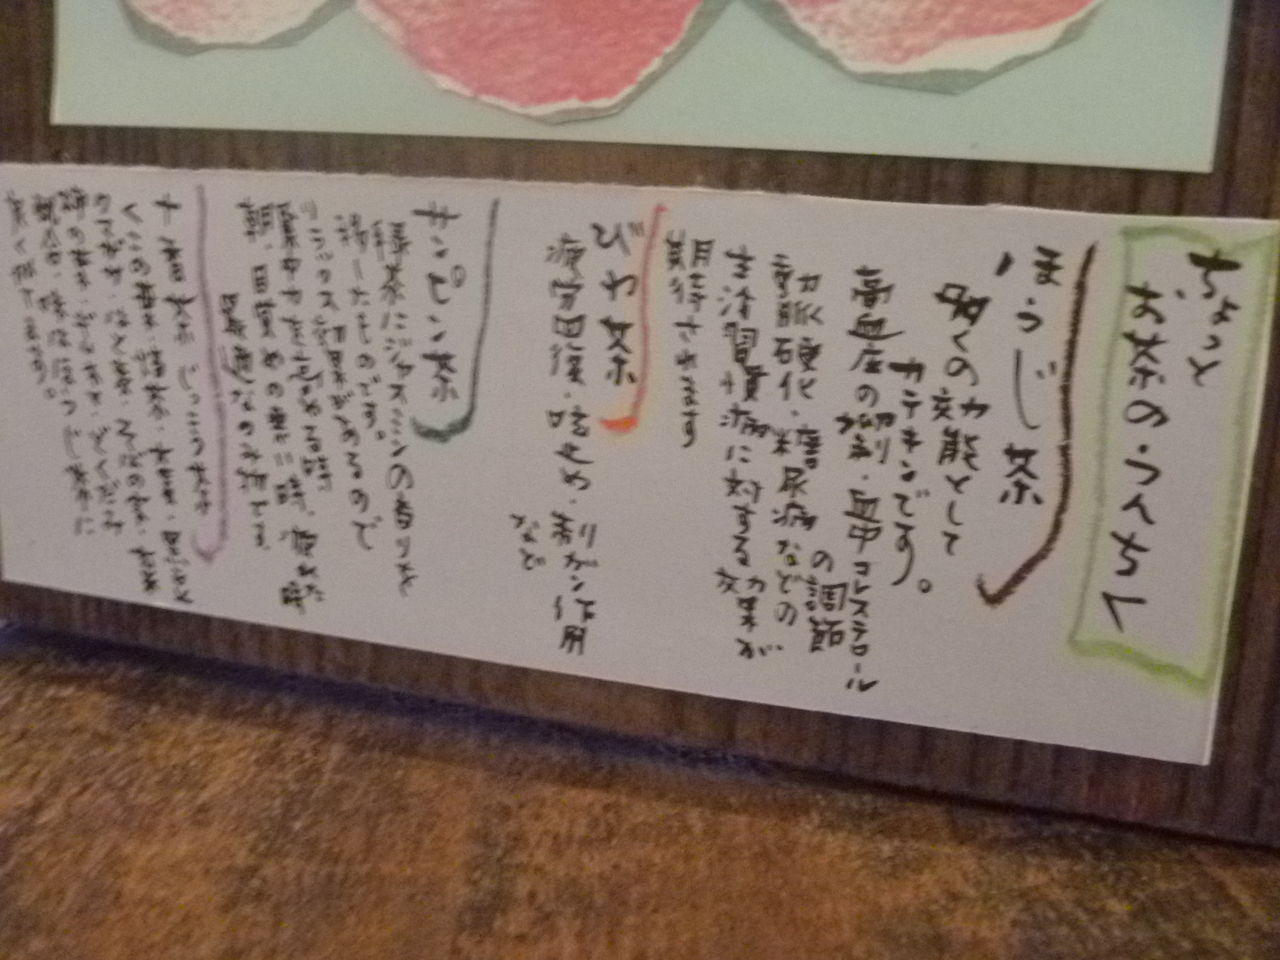 ちょっと
お茶のうんちく
ほうじ茶
多くの効能として
カテキンです。
高血圧の抑制・血中コレステロール
の調節
動脈硬化・糖尿病などの
生活習慣病に対する効果が
期待されます
びわ茶
疲労回復・咳止め・制ガン作用
など
サンピン茶
緑茶にジャスミンの香りを
したものです。
リラックス効果があるので
集中力を高める時
朝、目覚めの悪い時、疲れた時
最適なのみ物です。
十香茶 じっこう茶
くこの葉・
クマザサ・はと麦・そばの実・玄米
柿の葉・・どくだみ
味はほうじ茶に